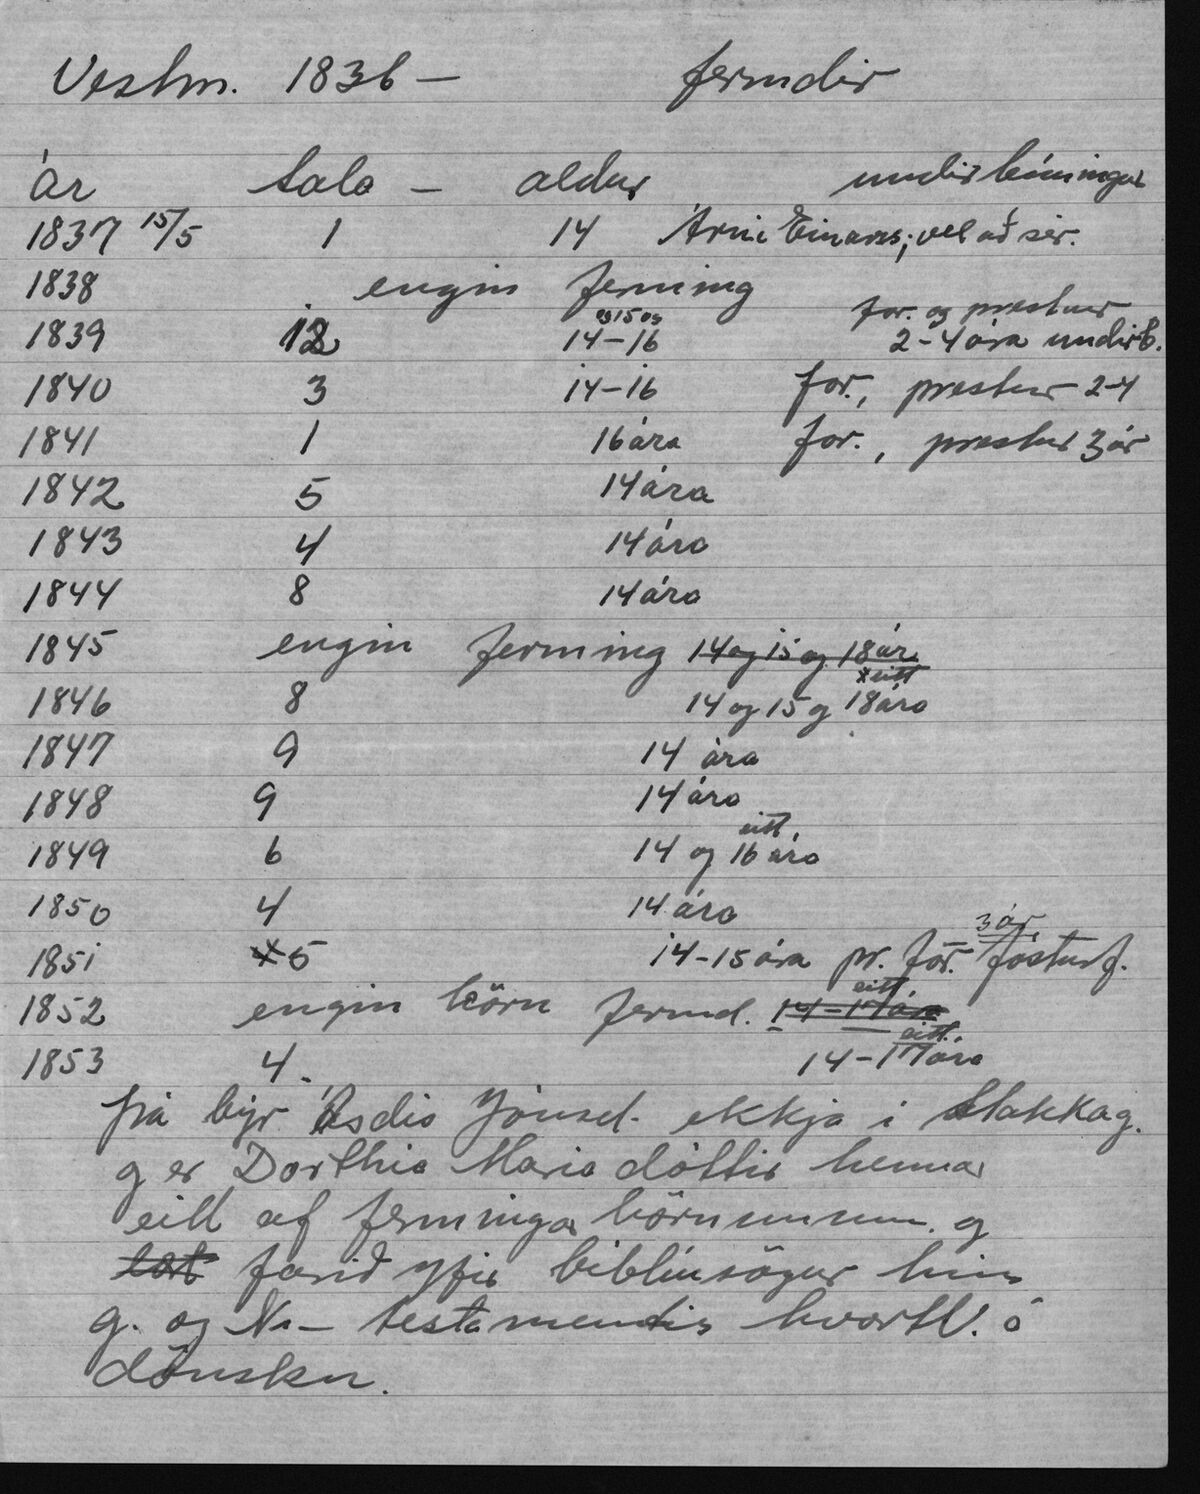 Vestm. 1836 – fermdir
ár tala – aldur undirbúningur
1837 15/5 1 14 Árni Einars; vel að sér.
1838 engin ferming
1839 12 14 og 15 og 16 for. og prestur 2-4 ára undirb.
1840 3 14-16 for., prestur 2-4
1841 1 16 ára for., prestur 3 ár
1842 5 14 ára
1843 4 14 ára
1844 8 14 ára
1845 engin ferming 14 og 15 og 18 ár
1846 8 14 og 15 og x eitt 18 ára
1847 9 14 ára
1848 9 14 ára
1849 6 14 og eitt 16 ára
1850 4 14 ára
1851 5 14-15 ára pr. for. 3 ár fósturf.
1852 engin börn fermd. 14 – eitt 17 ára
1853 4. 14 – eitt 17 ára
þá býr Ásdís Jónsd. ekkja í Stakkag.
og er Dorthia Maria dóttir hennar
eitt af fermingar börnunum og
farið yfir biblíusögur hins
g. og N. – testamentis hvortv. á
dönsku.